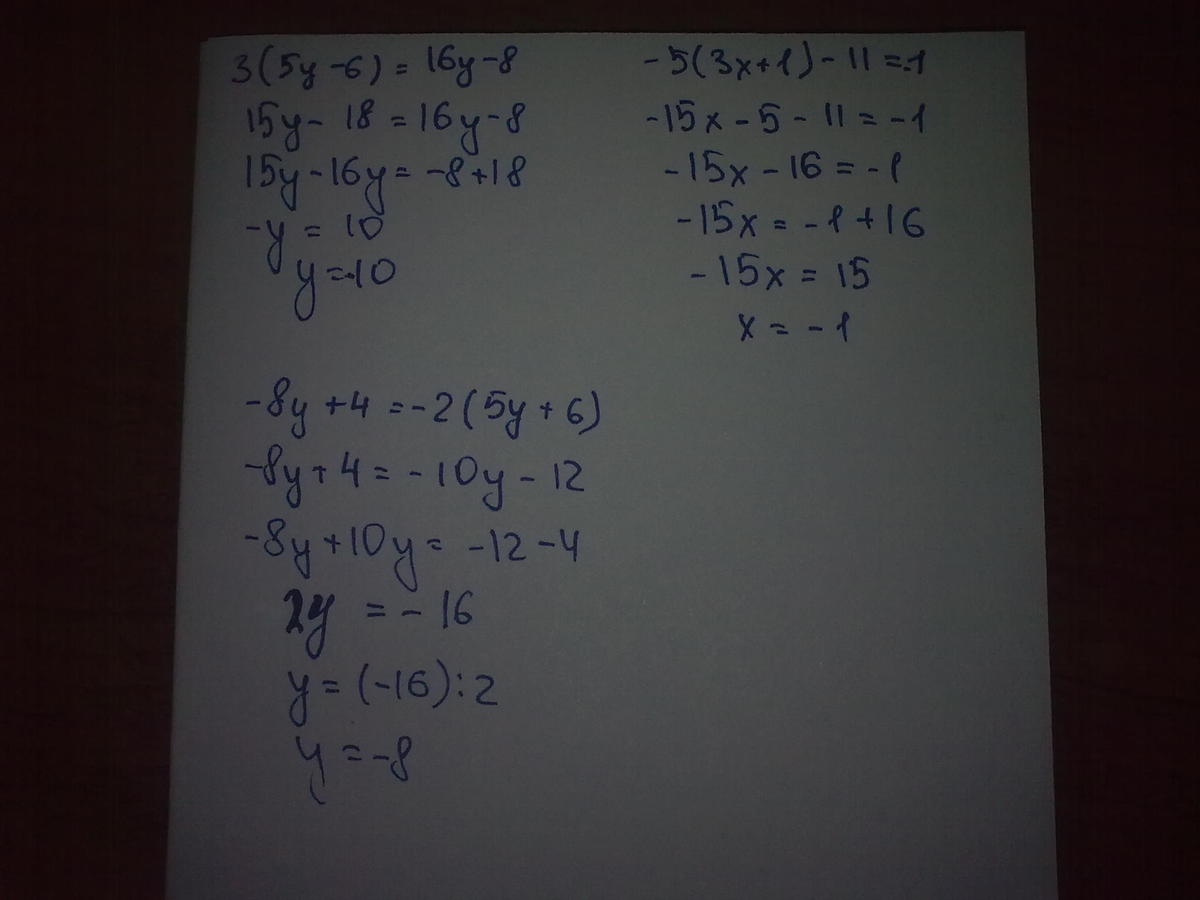 3(5y-6)=16y-8
15y-18=16y-8
15y-16y=-8+18
-y=10
y=-10
-5(3x+1)-11=-1
-15x-5-11=-1
-15x-16=-1
-15x=-1+16
-15x=15
x=-1
-8y+4=-2(5y+6)
-8y+4=-10y-12
-8y+10y=-12-4
2y=-16
y=(-16):2
y=-8